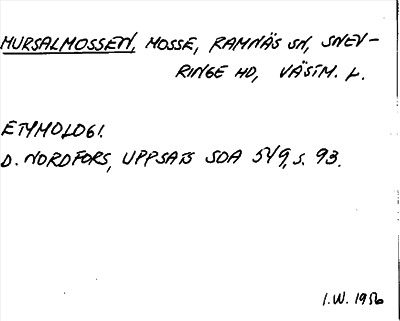 HURSALMOSSEN, MOSSE, RAMNÄS SN, SNEV-
RINGE HD, VÄSTM. L.
ETYMOLOGI.
D. NORDFORS, UPPSATS SOA 549, S. 93.
I.W. 1956